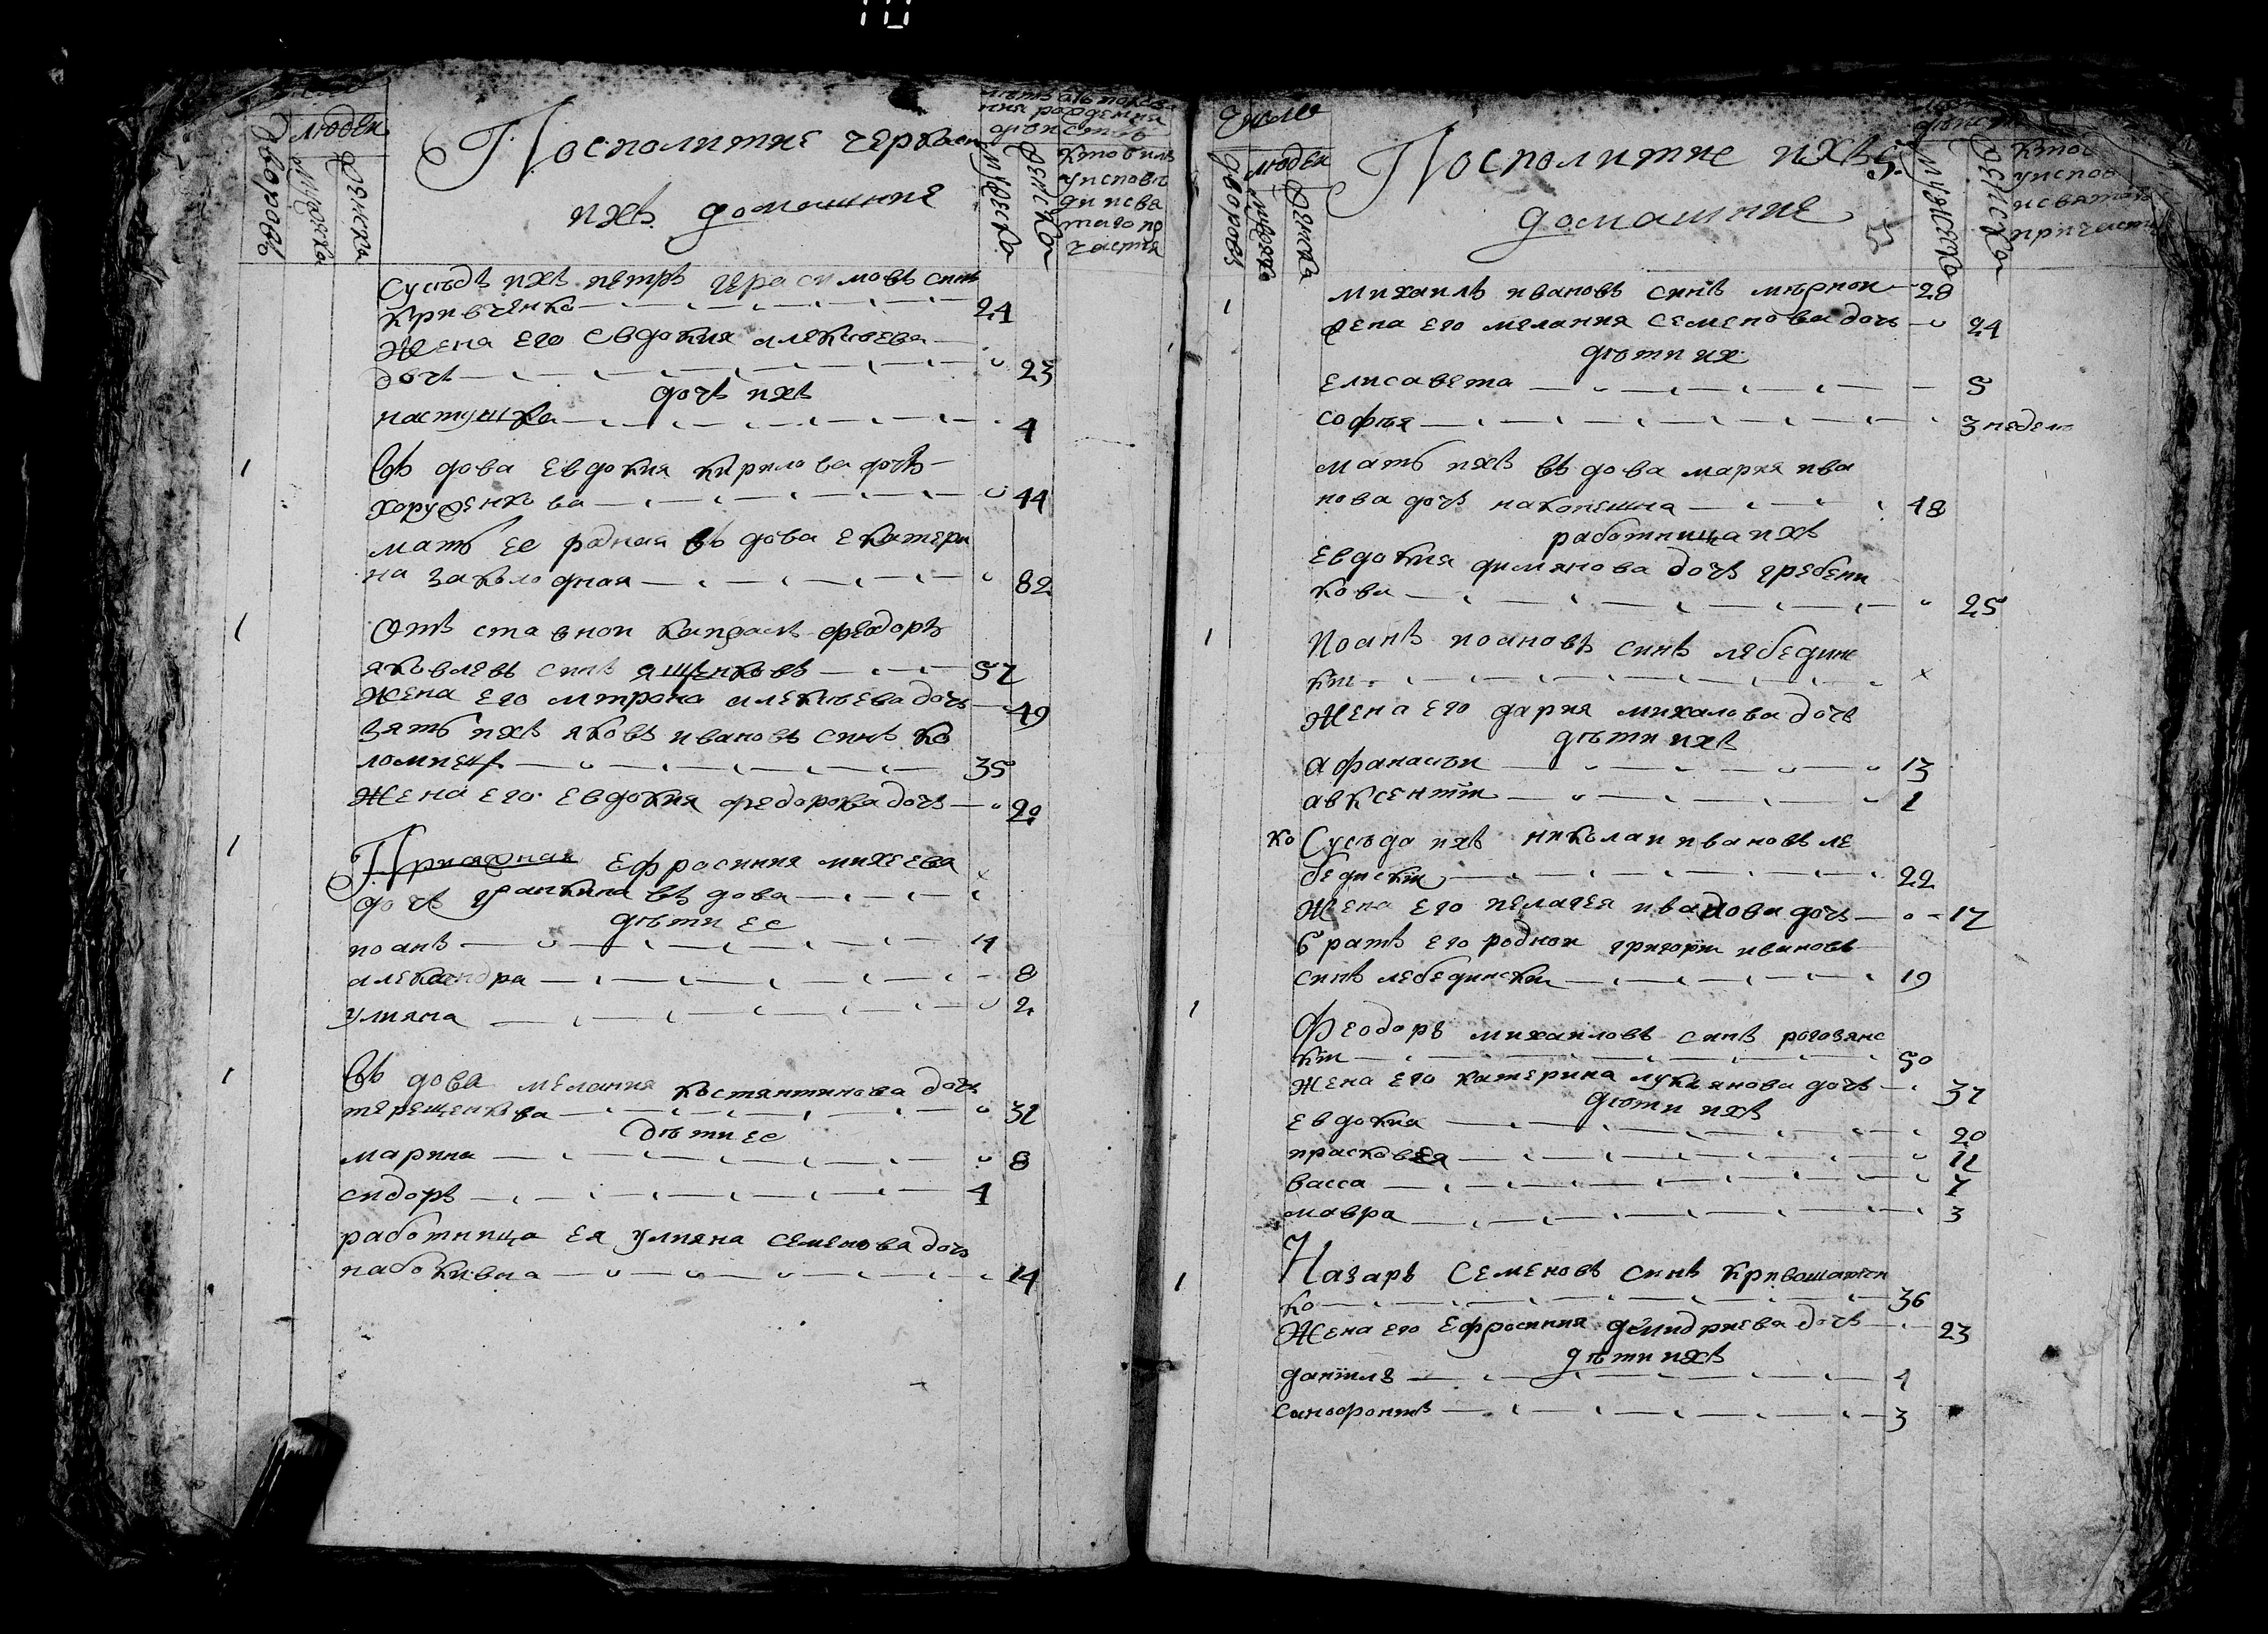 людей
дворовъ
мужеска
женска
Посполитие черкаси
ихъ домашние
мужеска
женска
кто билъ
у исповѣ
ди и свя
таго при
частия
Сусѣдъ ихъ петръ герасимовъ синъ
кривченко 24
Жена его Евдокия алексѣева
дочъ 23
дочъ ихъ
настушка 4
1 Въ дова евдокия кирилова дочъ
харуженкова 44
мать ее родная въ дова екатери
на заколодная 82
1 Отъ ставной капралъ феодоръ
яковлевъ синъ ященковъ 57
Жена его матрона алексѣева дочъ 49
зять ихъ яковъ ивановъ синъ ко
ломиецъ 35
Жена его евдокия федорова дочъ 20
1 Приезжая Ефросиния михеева ×
дочъ въ дова
дѣти ее
иоанъ 14
александра 8
улияна 2
1 Въ дова мелания костянтинова дочъ
терещенкова 32
дѣти ее
марина 8
сидоръ 4
работница ея улияна семенова дочъ
набокивна 14
Число
людей
дворовъ
мужеска
женска
Посполитие ихъ
домашние
5
мужеска
женска
кто
у испов
и святаго
причастия
1 михаилъ ивановъ синъ мѣрной 28
жена его мелания семенова дочъ 24
дѣти их
елисавета 5
софѣя 3 недел
мать ихъ въ дова мария ива
нова дочъ наконешна 48
работница ихъ
евдокия димянова дочъ гребени
кова 25
1 Иоанъ иоановъ синъ лебединс
кій ×
Жена его дария михалова дочъ
дѣти ихъ
афанасѣи 13
авксентій 1
ко Сусѣда ихъ николаи ивановъ ле
бедискій 22
Жена его пелагея иванова дочъ 17
братъ его родной григорій ивановъ
синъ лебединскій 19
1 Феодоръ михаиловъ синъ роговянс
кій 50
Жена его катерина лукиянова дочъ 37
дѣти ихъ
евдокиа 20
прасковея 11
васса 7
мавра 3
1 Назаръ Семеновъ синъ кривошапчен
ко 36
Жена его Ефросиния демидриева дочъ 23
дѣти ихъ
даніилъ 4
ѯанѳофонтъ 3